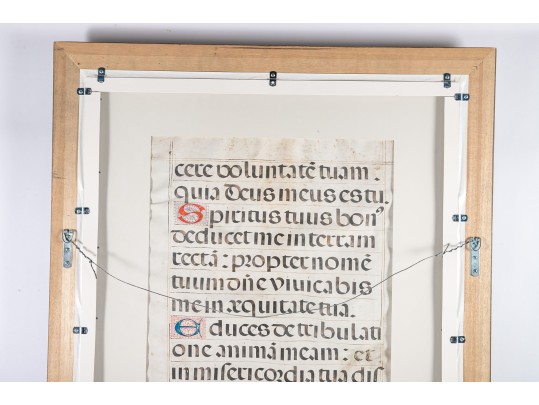 cere voluntatē tuam:
quia deus meus es tu.
Spiritus tuus bonꝰ
deducet me in terram
rectā: propter nomē
tuum dn̄e vivicabis
me in æquitate tua.
Educes de tribulati
one animā meam: et
in misericordia tua dis